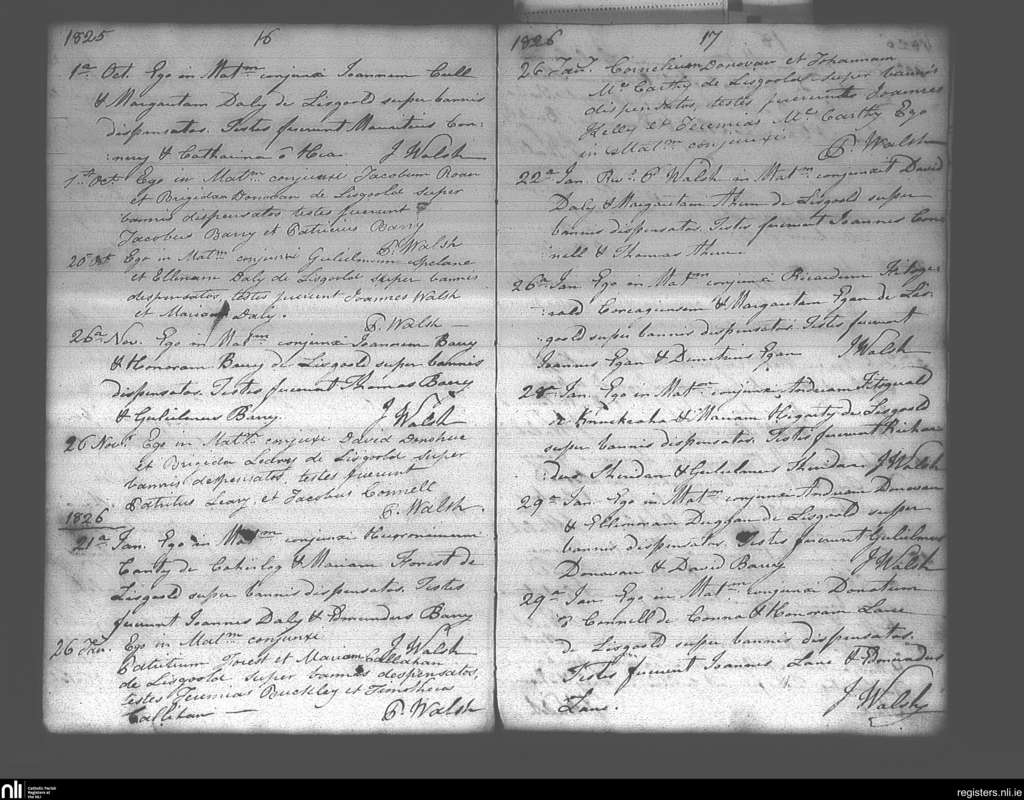 1825 16
1a Oct. Ego in Matm conjunxi Joannem Cull
& Margaritam Daly de Lisgoold super bannis
dispensatos. Testes fuerunt Mauritius Con:
:nery & Catharina ō Hea J Walsh
1st Oct Ego in Matm conjunxi Jacobum Roan
et Brigidam Donovan de Lisgoold super
bannis dispensatos, testes fuerunt
Jacobus Barry et Patricius Barry
P. Walsh
26 Oct Ego in Matm conjunxi Gulielmum Spelane
et Ellenam Daly de Lisgoold super bannis
dispensatos, testes fuerunt Joannes Walsh
et Mariam Daly.
P. Walsh
26a Nov. Ego in Matm conjunxi Joannem Barry
& Honoram Barry de Lisgoold super bannis
dispensatos. Testes fuerunt Thomas Barry
& Gulielmus Barry. J Walsh
26 Novr Ego in Matm conjunxi David Donohue
et Brigidam de Lisgoold super
bannis dispensatos, testes fuerunt
Leary, et Jacobus Connell
P. Walsh.
1826
21a Jan. Ego in Matm conjunxi
Canty de & Mariam Forest de
Lisgoold super bannis dispensatos. Testes
fuerunt Joannes Daly & Edmundus Barry
J Walsh
26 Jan. Ego in Matm conjunxi
Patritium Forest et Mariam Callahan
de Lisgoold super bannis dispensatos,
testes Jeremias Buckley et
Callihan P. Walsh
1826 17
26 Janr. Cornelium Donovan et Johannam
Mc Carthy de Lisgoold super bannis
dispensatos, testes fuerunt Joannes
Kelly et Jeremias Mc Carthy Ego
in Matm conjunxi
P. Walsh
22a Jan. Revd P Walsh in Matm conjunxit David
Daly & Margaritam Ahern de Lisgoold super
bannis dispensatos. Testes fuerunt Joannes Con
:nell & Thomas Ahern
26a Jan. Ego in Matm conjunxi Ricardum Fitzge
:rald & Margaritam Egan de Lis:
:goold super bannis dispensatos. Testes fuerunt
Joannes Egan & Demetrius Egan J Walsh
28 Jan. Ego in Matm conjunxi Andream Fitzgerald
& Mariam Hegarty de Lisgoold
super bannis dispensatos. Testes fuerunt Richar
:dus Sheridan & Gulielmus Sheridan J Walsh
29a Jan. Ego in Matm conjunxi Andream Donovan
& Ellenoram Duggan de Lisgoold super
bannis dispensatos. Testes fuerunt Gulielmus
Donovan & David Barry J Walsh
29a Jan. Ego in Matm conjunxi Donatum
O Connell de Conna & Honoram Lane
de Lisgoold super bannis dispensatos.
Testes fuerunt Joannes Lane & Edmundus
Lane. J Walsh
nli Catholic Parish
Registers at
the NLI
registers.nli.ie